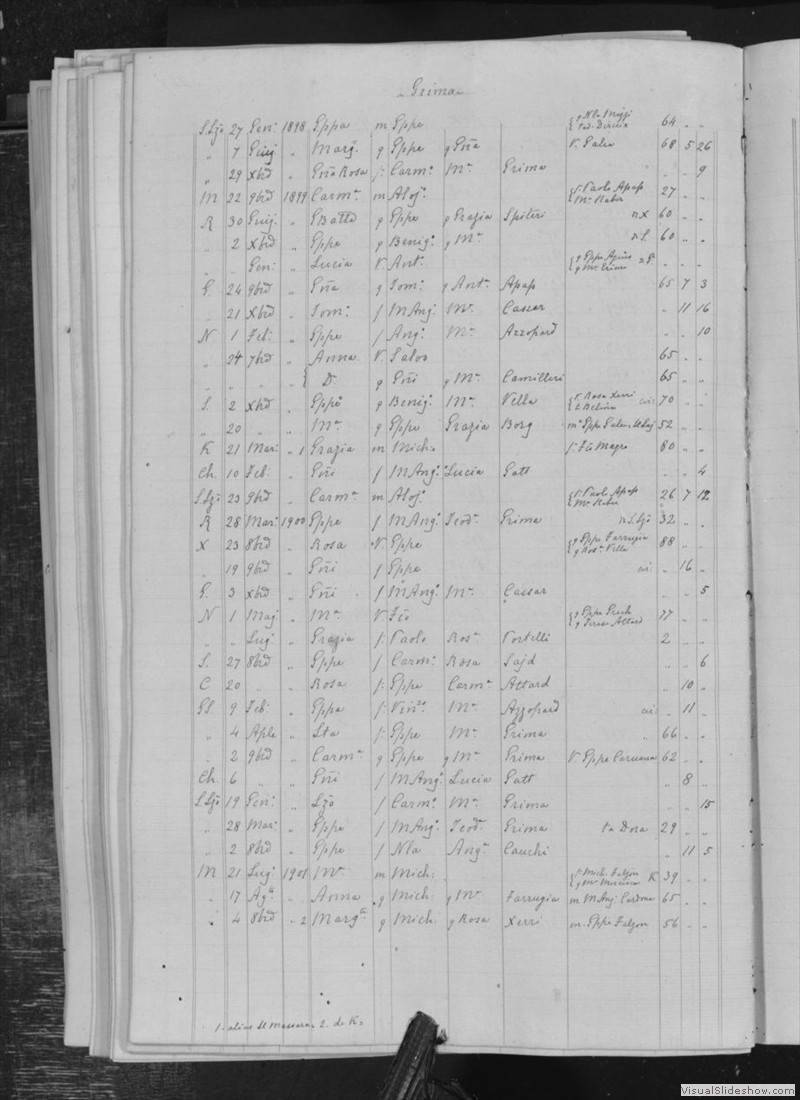 Grima
S.Ljō 27 Gen: 1898 Eppa m Eppe { g Nla Mizzi 64 " "
" 7 Giug " Marg. g Eppe g Gña V. Galea 68 5 26
" 29 Xbrd " Gña Rosa f: Carm: Mᵃ Grima " " 9
M 22 9brd 1899 Carmᵃ m Aloj: { Paolo Apap Mᵃ 27 " "
R 30 Giug: " GBatta g Eppe g Grazia Spiteri n X 60 " "
" 2 Xbrd " Eppe g Benig: g Mᵃ n S. 60 " "
" Gen: " Lucia V. Ant: { g Eppe g Mᵃ " " "
G. 24 9brd " Gña g Tom: g Antᵃ Apap 65 7 3
" 21 Xbrd " Tom: f MAng: Mᵃ Cassar " 11 16
N 1 Feb: " Eppe f Ang: Mᵃ Azzopard " " 10
" 24 7brd " Anna V. Salvo 65 " "
" " " { D. g Gñi g Mᵃ Camilleri 65 " "
S. 2 Xbrd " Eppe g Benig: Mᵃ Vella { Rosa Xerri 70 " "
" 20 " " Mᵃ g Eppe Grazia Borg m Eppe Galea 52 " "
K 21 Mar: " 1 Grazia m Mich: Magro 80 " "
Ch. 10 Feb: " Gñi f MAng: Lucia Gatt " " 4
S.Ljō 23 9brd " Carmᵃ m Aloj: { Paolo Apap Mᵃ 26 7 12
R 28 Mar: 1900 Eppe f MAng: Teod: Grima n S.Ljō 32 " "
X 23 8brd " Rosa V. Eppe { g Eppe Farrugia g Rosᵃ Vella 88 " "
" 19 9brd " Gñi f Eppe " 16 "
G. 3 Xbrd " Gñi f MAng: Mᵃ Cassar " " 5
N 1 Maj: " Mᵃ V. Fcō { g Eppe g Teresa Attard 77 " "
" " Lug: " Grazia f: Paolo Rosᵃ Portelli 2 " "
S. 27 8brd " Eppe f Carm: Rosa Sajd " " 6
C 20 " " Rosa f: Eppe Carmᵃ Attard " 10 "
Gl 9 Feb: " Eppa f: Vinᶻᵒ Mᵃ Azzopard " 11 "
" 4 Aple " Sta f: Eppe Mᵃ Grima " 66 " "
" 2 9brd " Carmᵃ g Eppe g Mᵃ Grima V. Eppe Caruana 62 " "
Ch. 6 " " Gñi f MAng: Lucia Gatt " 8 "
S.Ljō 19 Gen: " Ljō f Carm: Mᵃ Grima " " 15
" 28 Mar: " Eppe f MAng: Teod: Grima ta Dora 29 " "
" 2 8brd " Eppe f Nla Angᵃ Cauchi " 11 5
M 21 Lug: 1901 Mᵃ m Mich: { Mich: Falzon g Mᵃ K 39 " "
" 17 Agᵗᵒ " Anna g Mich: g Mᵃ Farrugia m MAng: Cardona 65 " "
" 4 8brd " 2 Margᵗᵃ g Mich: g Rosa Xerri m Eppe Falzon 56 " "
1. alias 2. de K.
VisualSlideshow.com